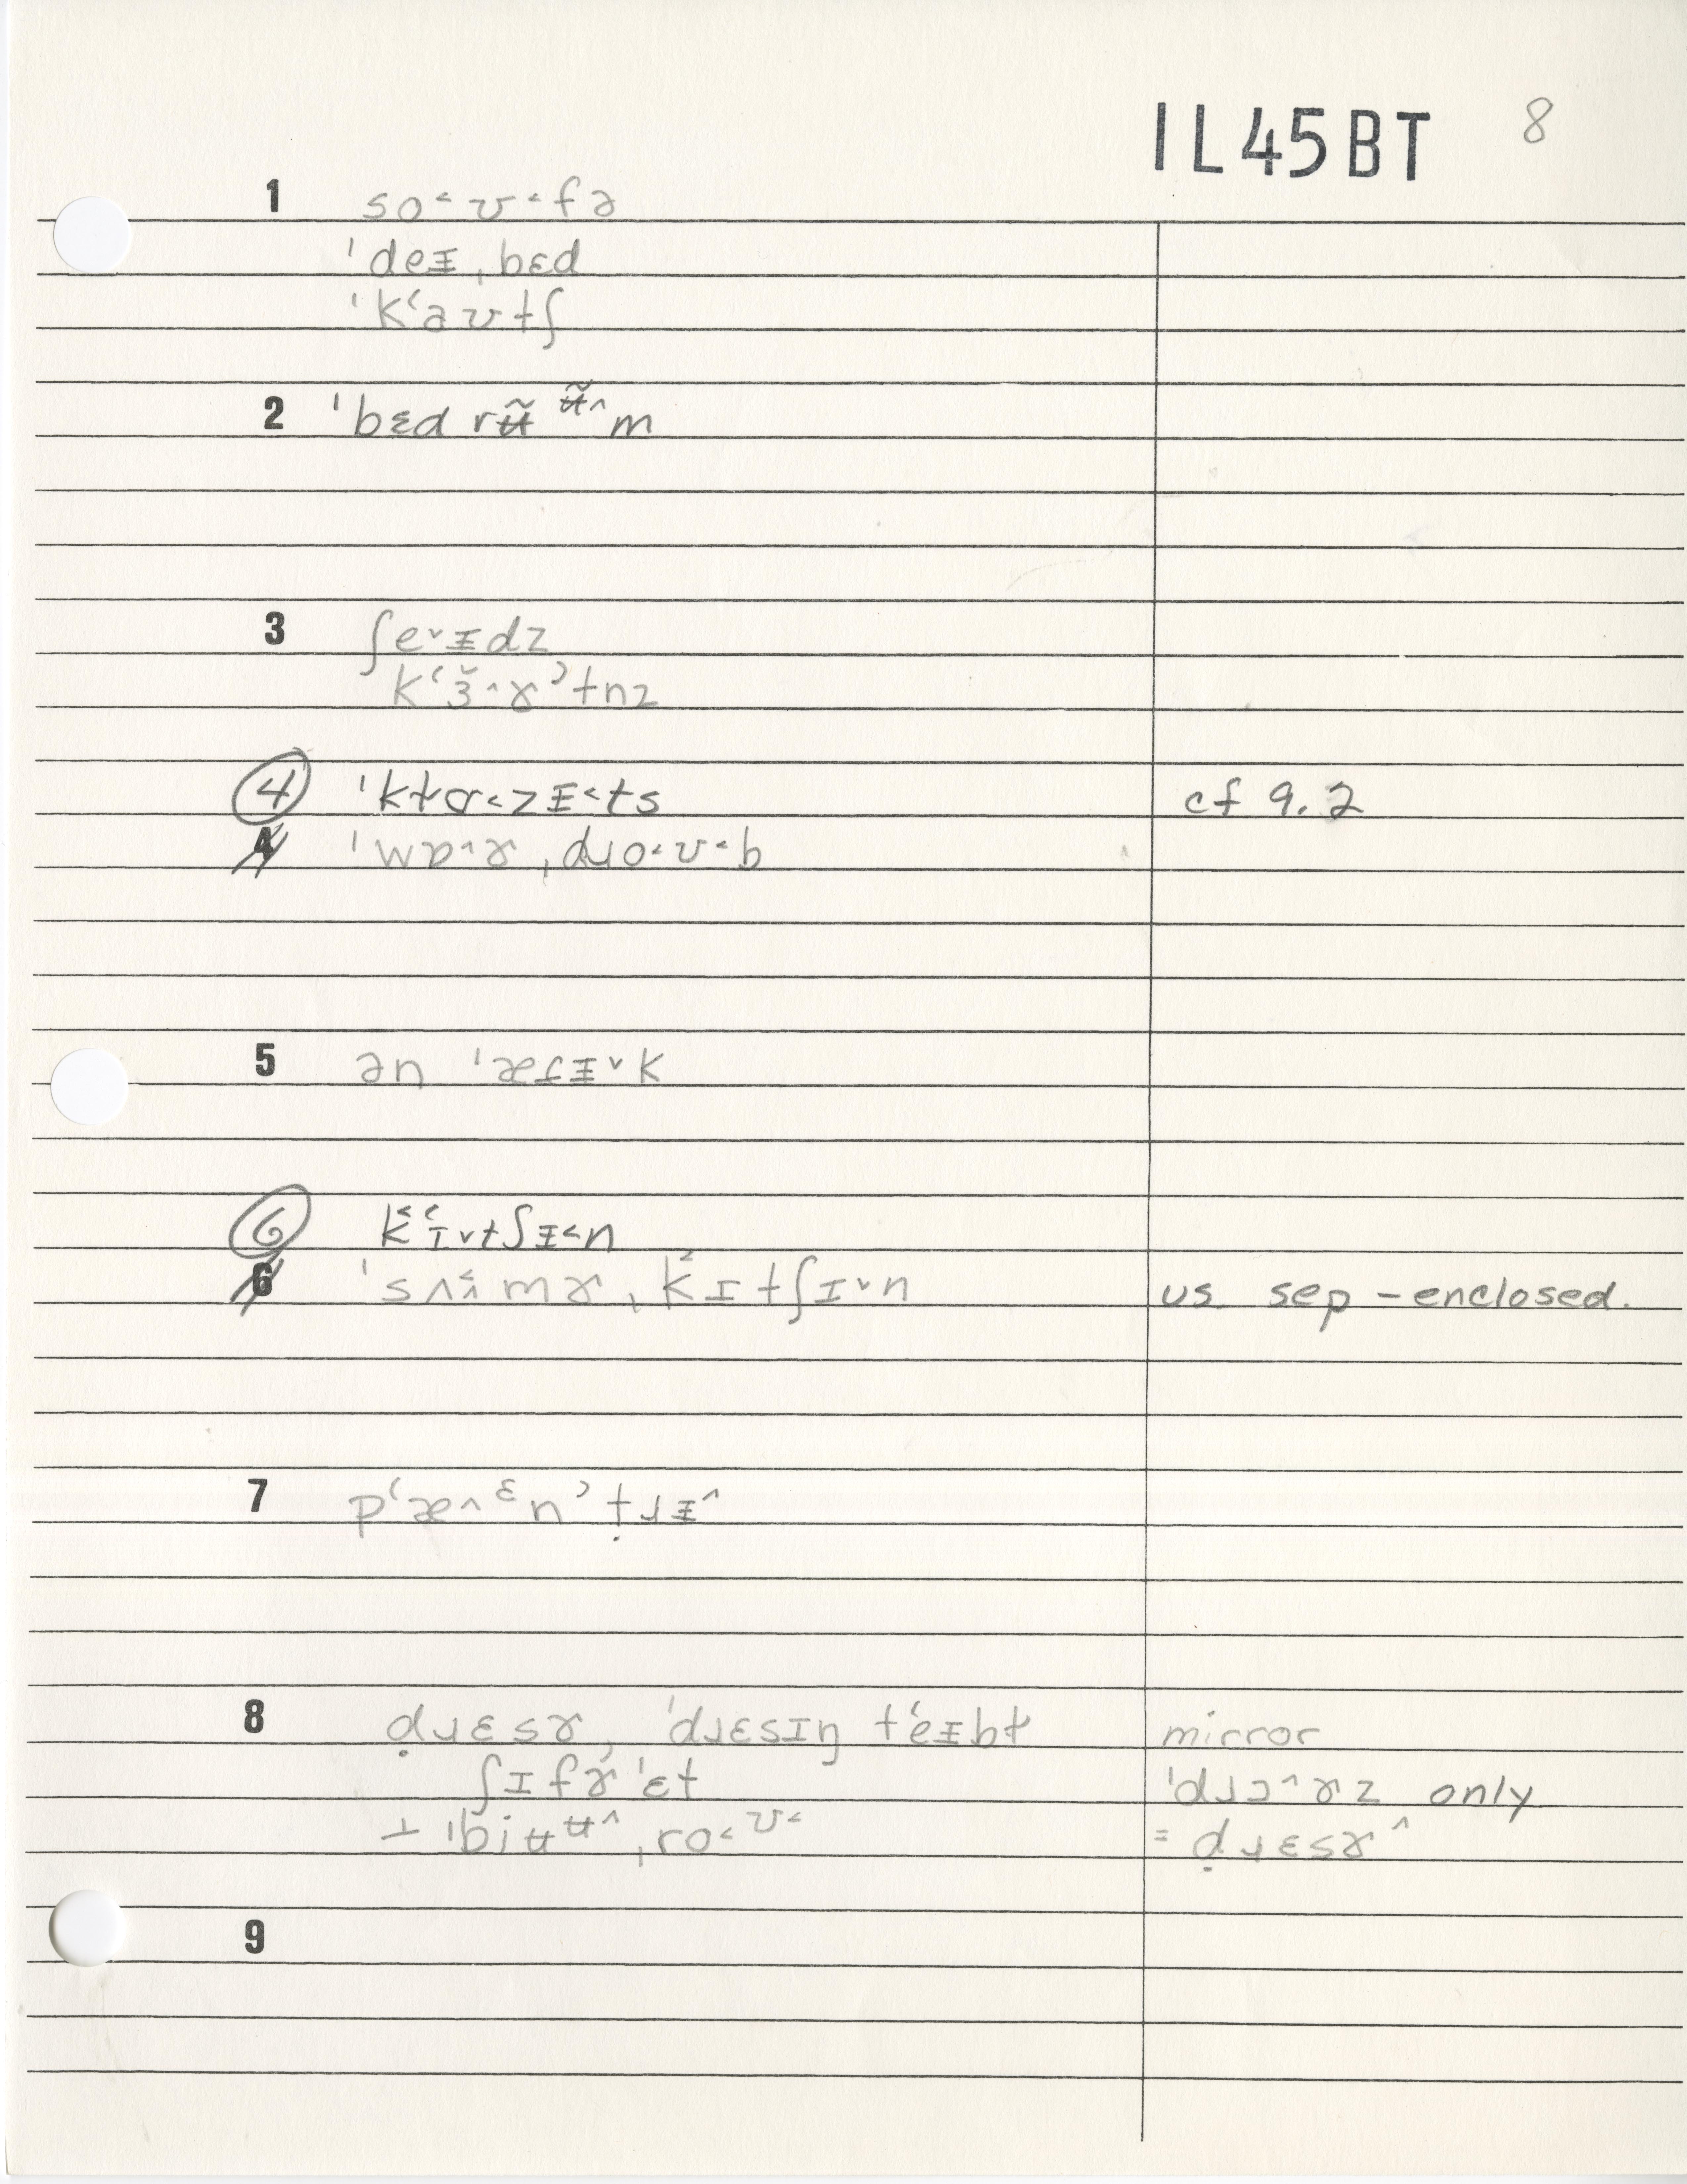 IL45BT 8
1 so˂ʊ˂fə
ˈdeᵻˌbɛd
ˈkʻaʊtʃ
2 ˈbɛd rʉ̃ ʉ̃^m
3 ʃe˅ᵻdz
kʻɜ̆^ɤʼtnz
4 ˈkɫɑ˂zᵻ˂ts cf 9.2
4 ˈwɒ^ɤˌdɹo˂ʊ˂b
5 ən ˈæɾᵻ˅k
6 k̯ʻɪ˅tʃᵻ˂n
6 ˈsʌ^mɤˌk̯ɪtʃɪ˅n us. sep - enclosed.
7 pʻæ^ɛnʼṭɹᵻ^
8 ḍɹɛsɤ, ˈdɹɛsɪŋ tʻeᵻbɫ mirror
ʃɪfɤˈɛt ˈdɹɔ^ɤz only
⊥ ˈbiʉʉ^ˌro˂ʊ˂ = ḍɹɛsɤ^
9